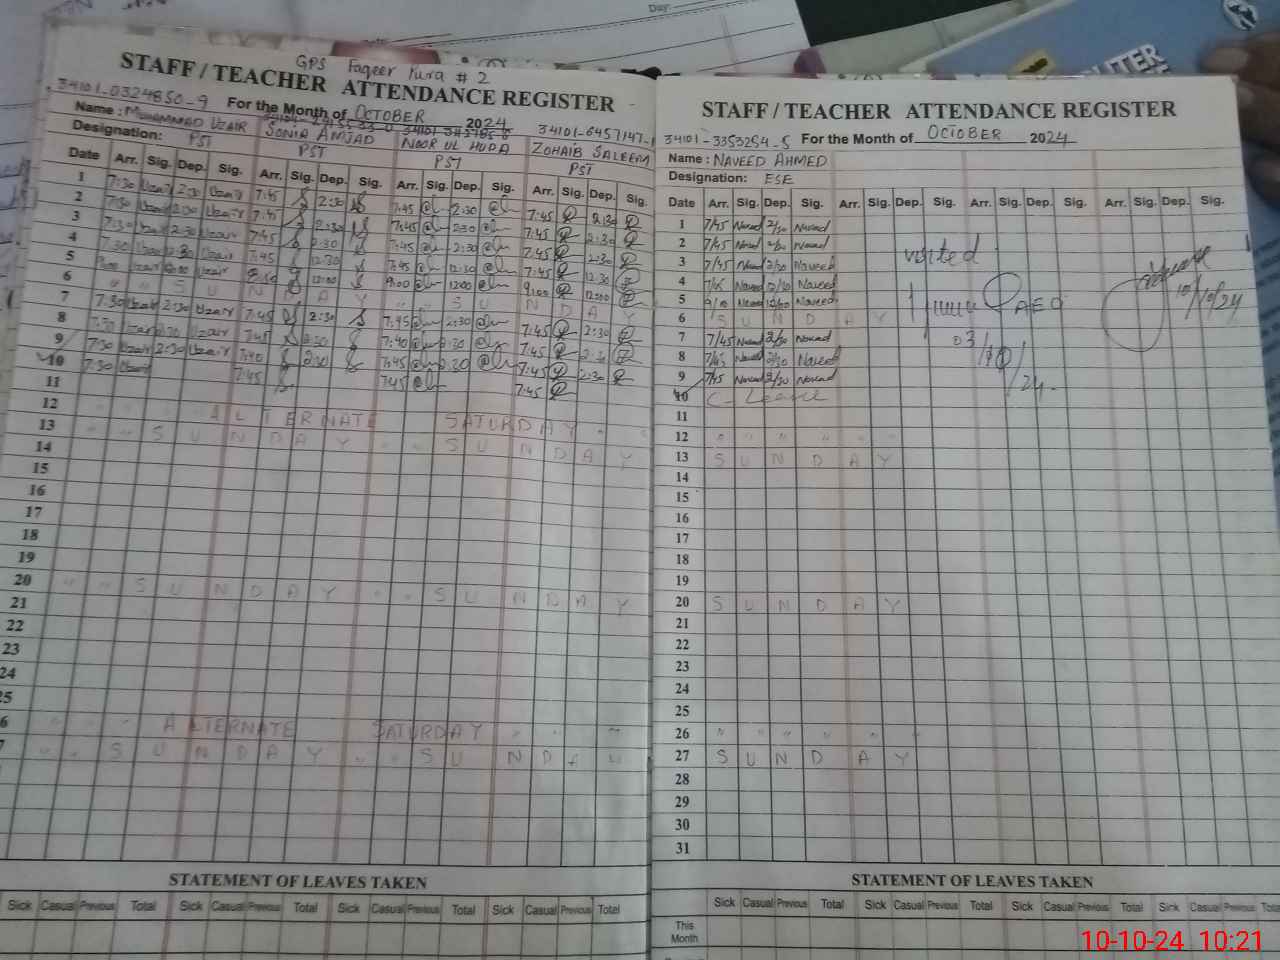 Day:
GPS Faqeer Pura # 2
STAFF / TEACHER ATTENDANCE REGISTER
34101-0324850-9 For the Month of OCTOBER 2024 34101-6457147-
Name : MUHAMMAD UZAIR SONIA AMJAD NOOR UL HUDA ZOHAIB SALEEM
Designation: PST PST PST PST
Date Arr. Sig. Dep. Sig. Arr. Sig. Dep. Sig. Arr. Sig. Dep. Sig. Arr. Sig. Dep. Sig.
1 7:30 Uzair 2:30 Uzair 7:45 2:30 7:45 2:30 7:45 2:30
2 7:30 Uzair 2:30 Uzair 7:45 2:30 7:45 2:30 7:45 2:30
3 7:30 Uzair 2:30 Uzair 7:45 2:30 7:45 2:30 7:45 2:30
4 7:30 Uzair 12:30 Uzair 7:45 12:30 7:45 12:30 7:45 12:30
5 9:00 Uzair 12:00 Uzair 12:00 9:00 12:00 9:00 12:00
6 " " S U N D A Y " " S U N D A Y
7 7:30 Uzair 2:30 Uzair 7:45 2:30 7:45 2:30 7:45 2:30
8 7:30 Uzair 2:30 Uzair 7:45 2:30 7:40 2:30 7:45 2:30
9 7:30 Uzair 2:30 Uzair 7:40 2:30 7:45 2:30 7:45 2:30
10 7:30 Uzair 7:45 7:45 7:45
11
12 " " " ALTERNATE SATURDAY " "
13 " " S U N D A Y " " S U N D A Y
14
15
16
17
18
19
20 " " S U N D A Y " " S U N D A Y
21
22
23
24
5
6 " " " ALTERNATE SATURDAY " " "
7 " " S U N D A Y " " S U N D A Y
STATEMENT OF LEAVES TAKEN
Sick Casual Previous Total Sick Casual Previous Total Sick Casual Previous Total Sick Casual Previous Total
STAFF / TEACHER ATTENDANCE REGISTER
34101-3353254-5 For the Month of OCTOBER 2024
Name : NAVEED AHMED
Designation: ESE
Date Arr. Sig. Dep. Sig. Arr. Sig. Dep. Sig. Arr. Sig. Dep. Sig. Arr. Sig. Dep. Sig.
1 7/45 Naveed 2/30 Naveed
2 7/45 Naveed 2/30 Naveed
3 7/45 Naveed 2/30 Naveed
4 7/45 Naveed 12/30 Naveed
5 9/0 Naveed 12/00 Naveed
6 S U N D A Y
7 7/45 Naveed 2/30 Naveed
8 7/45 Naveed 2/30 Naveed
9 7/45 Naveed 2/30 Naveed
10 C - Leave
11
12 " " " " " "
13 S U N D A Y
14
15
16
17
18
19
20 S U N D A Y
21
22
23
24
25
26 " " " " " "
27 S U N D A Y
28
29
30
31
visited
AEO
03/10/24
10/10/24
STATEMENT OF LEAVES TAKEN
Sick Casual Previous Total Sick Casual Previous Total Sick Casual Previous Total Sick Casual Previous Total
This Month
10-10-24 10:21